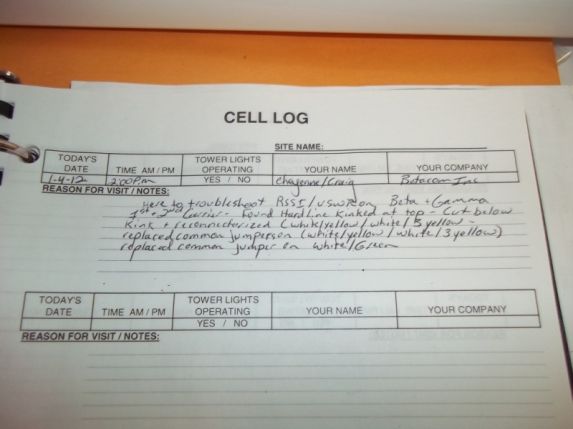 CELL LOG
SITE NAME:
TODAY'S DATE TIME AM / PM TOWER LIGHTS OPERATING YOUR NAME YOUR COMPANY
1-4-12 2:00pm YES / NO Chayenne/Craig Betacom Inc
REASON FOR VISIT / NOTES:
Here to troubleshoot RSSI/VSWR on Beta + Gamma
1st + 2nd Carrier - Found Hardline Kinked at top - Cut below
Kink + reconnectorized (white/yellow/white/3 yellow) -
replaced common jumpers on (white/yellow/white/3 yellow)
replaced common jumper on white/Green
TODAY'S DATE TIME AM / PM TOWER LIGHTS OPERATING YOUR NAME YOUR COMPANY
YES / NO
REASON FOR VISIT / NOTES: